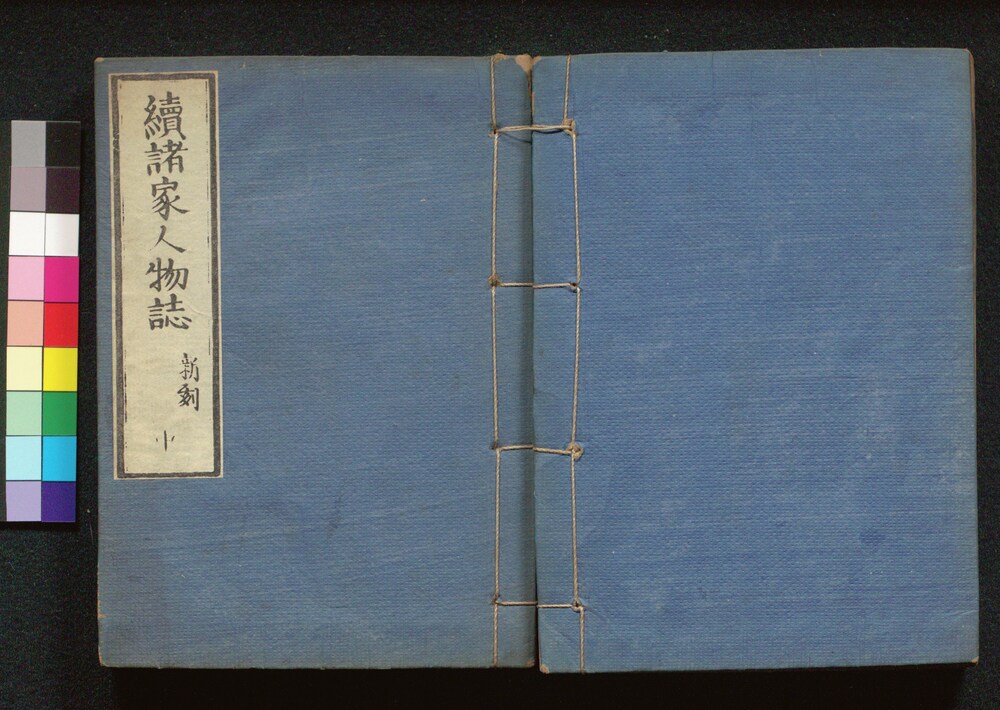 續諸家人物誌
新刻
中